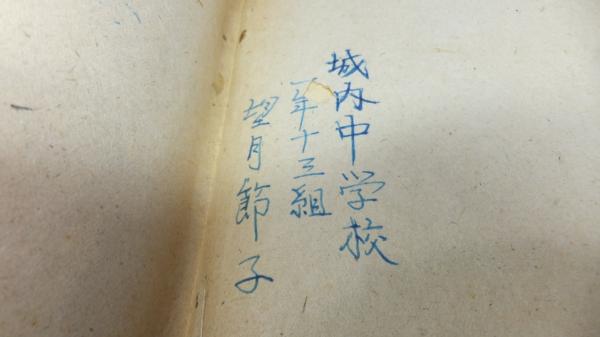 城内中学校
一年十三組
望月節子